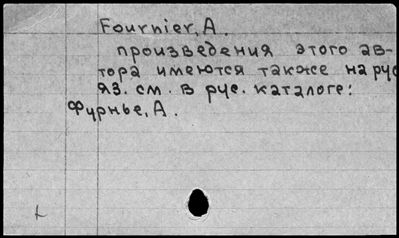 Fournier, A.
произведения этого ав-
тора имеются также на рус
яз. см. в рус. каталоге:
Фурнье, А.